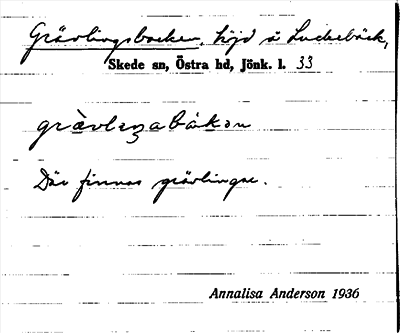 Grävlingsbacken, höjd å Luckebäck,
Skede sn, Östra hd, Jönk. l. 33
grävlɩŋabákən
Där finnas grävlingar.
Annalisa Anderson 1936